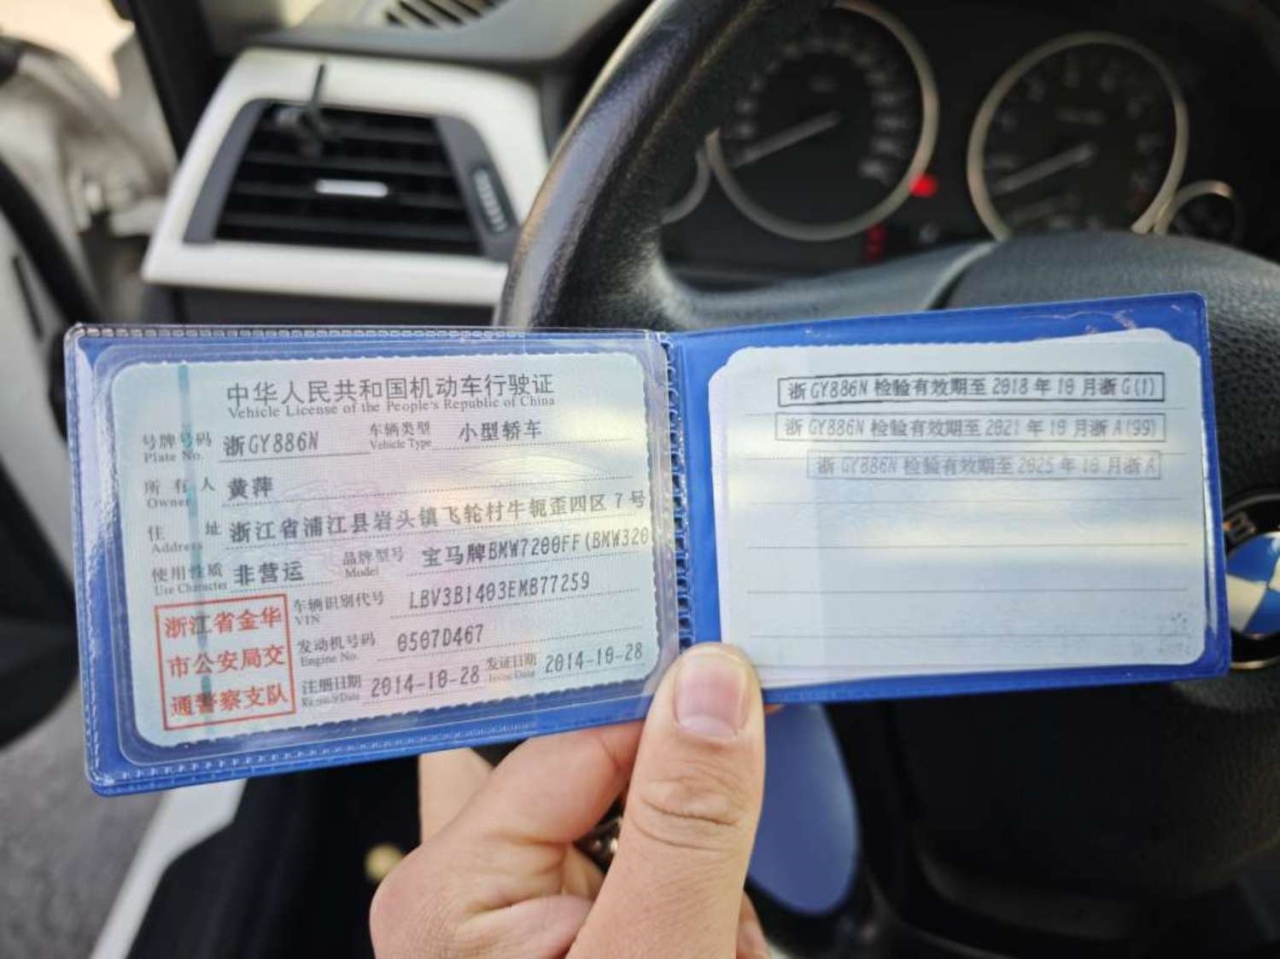 中华人民共和国机动车行驶证
Vehicle License of the People's Republic of China
号牌号码 浙GY886N 车辆类型 小型轿车
Plate No. Vehicle Type
所有人 黄萍
Owner
住址 浙江省浦江县岩头镇飞轮村牛轭歪四区7号
Address
使用性质 非营运 品牌型号 宝马牌BMW7200FF(BMW320
Use Character Model
浙江省金华
市公安局交
通警察支队
车辆识别代号 LBV3B1403EMB77259
VIN
发动机号码 0507D467
Engine No.
注册日期 2014-10-28 发证日期 2014-10-28
Issue Date
浙GY886N 检验有效期至2018年10月浙G(1)
浙GY886N 检验有效期至2021年10月浙A(99)
浙GY886N 检验有效期至2025年10月浙A